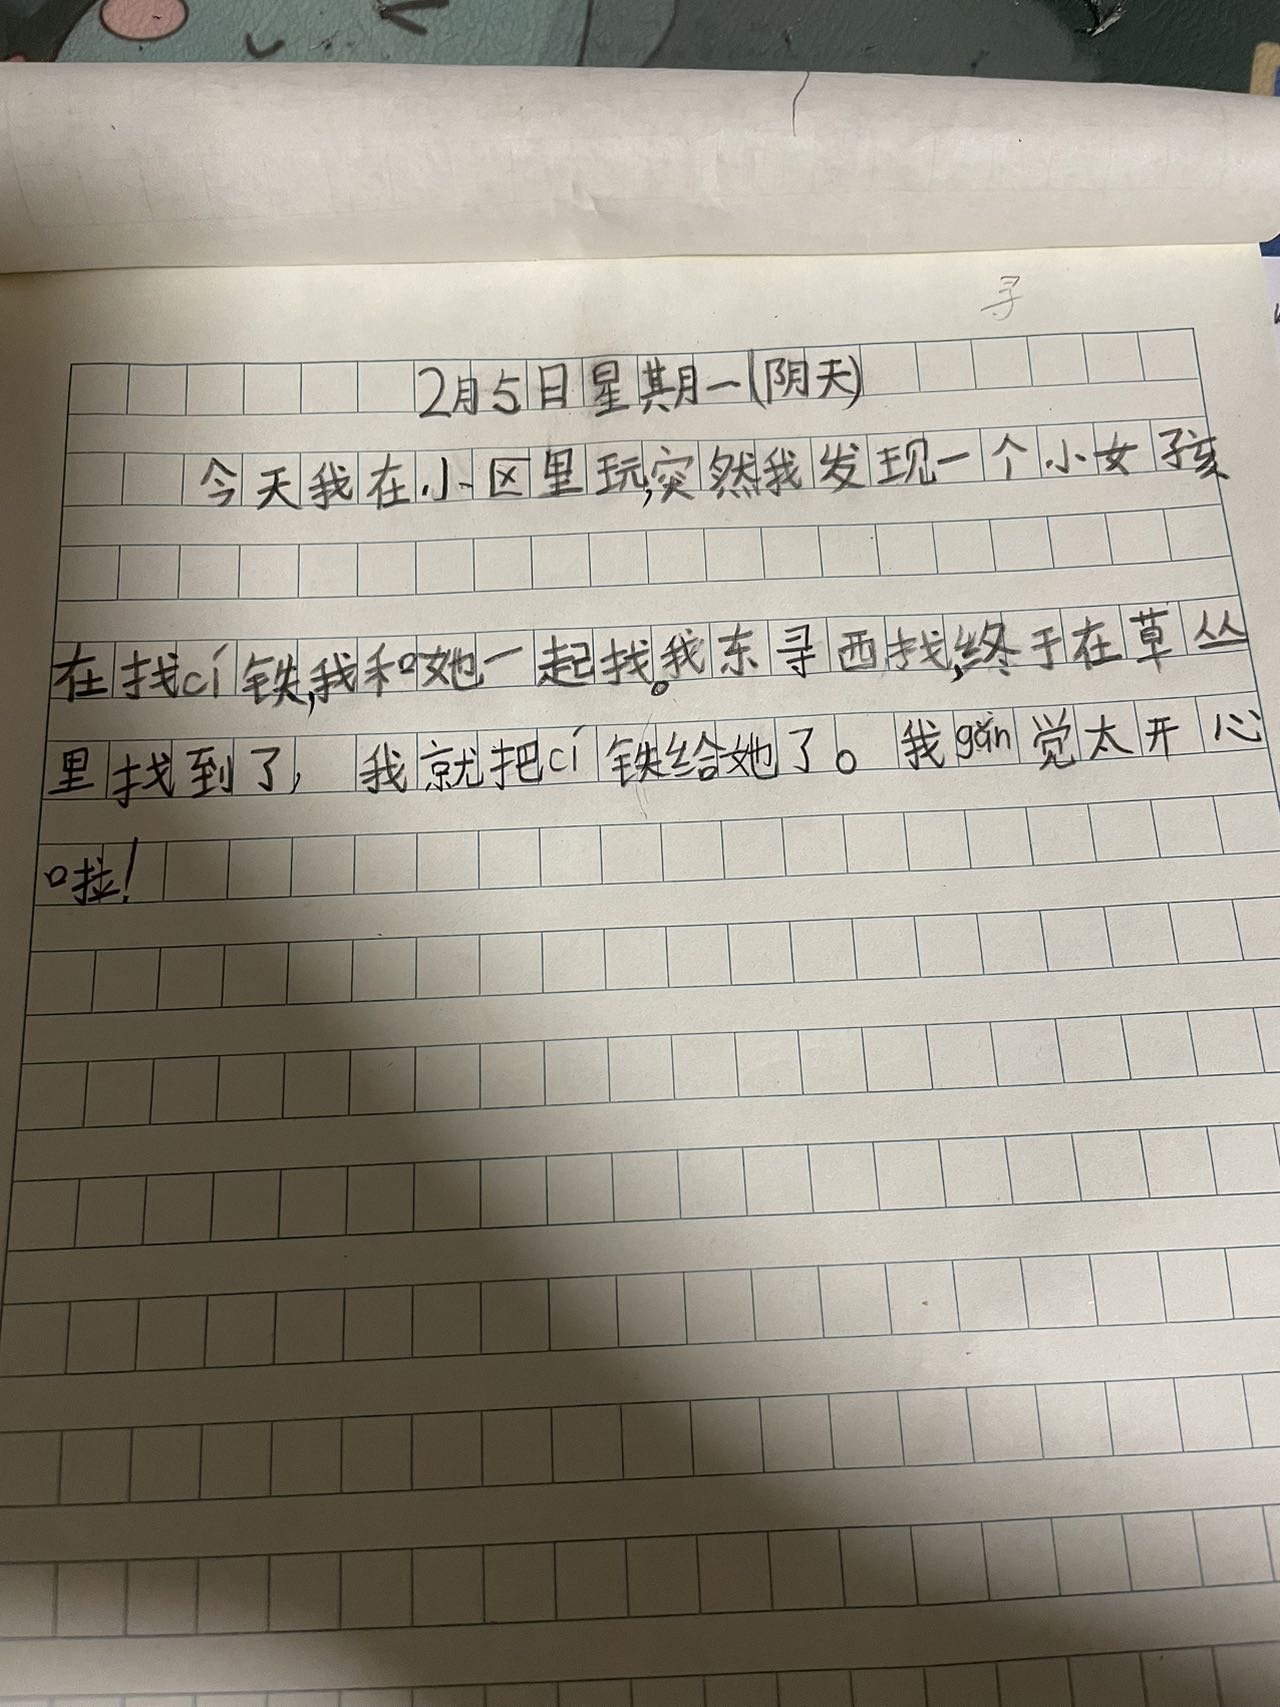 寻
2月5日星期一(阴天)
今天我在小区里玩,突然我发现一个小女孩
在找cí铁,我和她一起找。我东寻西找,终于在草丛
里找到了,我就把cí铁给她了。我gǎn觉太开心
啦!